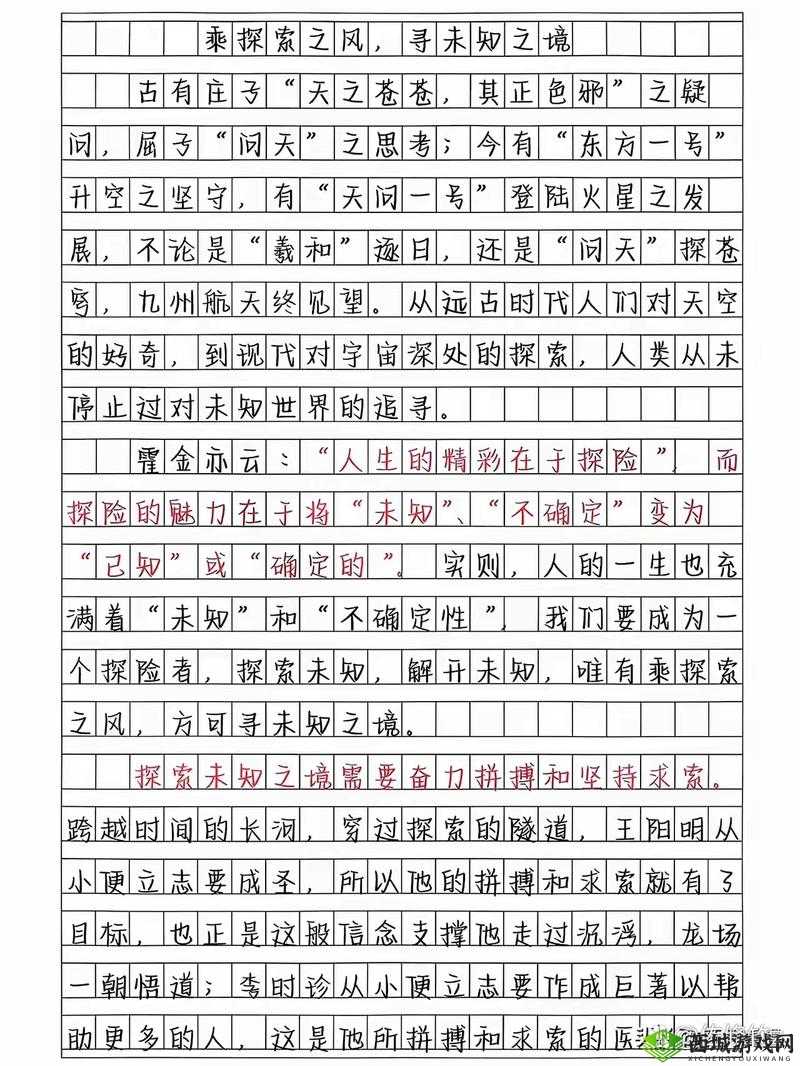 乘探索之风，寻未知之境
古有庄子“天之苍苍，其正色邪”之疑
问，屈子“问天”之思考；今有“东方一号”
升空之坚守，有“天问一号”登陆火星之发
展，不论是“羲和”逐日，还是“问天”探苍
穹，九州航天终见望。从远古时代人们对天空
的好奇，到现代对宇宙深处的探索，人类从未
停止过对未知世界的追寻。
霍金亦云：“人生的精彩在于探险”，而
探险的魅力在于将“未知”、“不确定”变为
“已知”或“确定的”。实则，人的一生也充
满着“未知”和“不确定性”，我们要成为一
个探险者，探索未知，解开未知，唯有乘探索
之风，方可寻未知之境。
探索未知之境需要奋力拼搏和坚持求索。
跨越时间的长河，穿过探索的隧道，王阳明从
小便立志要成圣，所以他的拼搏和求索就有了
目标，也正是这般信念支撑他走过沉浮，龙场
一朝悟道；李时诊从小便立志要作成巨著以帮
助更多的人，这是他所拼搏和求索的医
西城游戏网
XICHENGYOUXIWANG